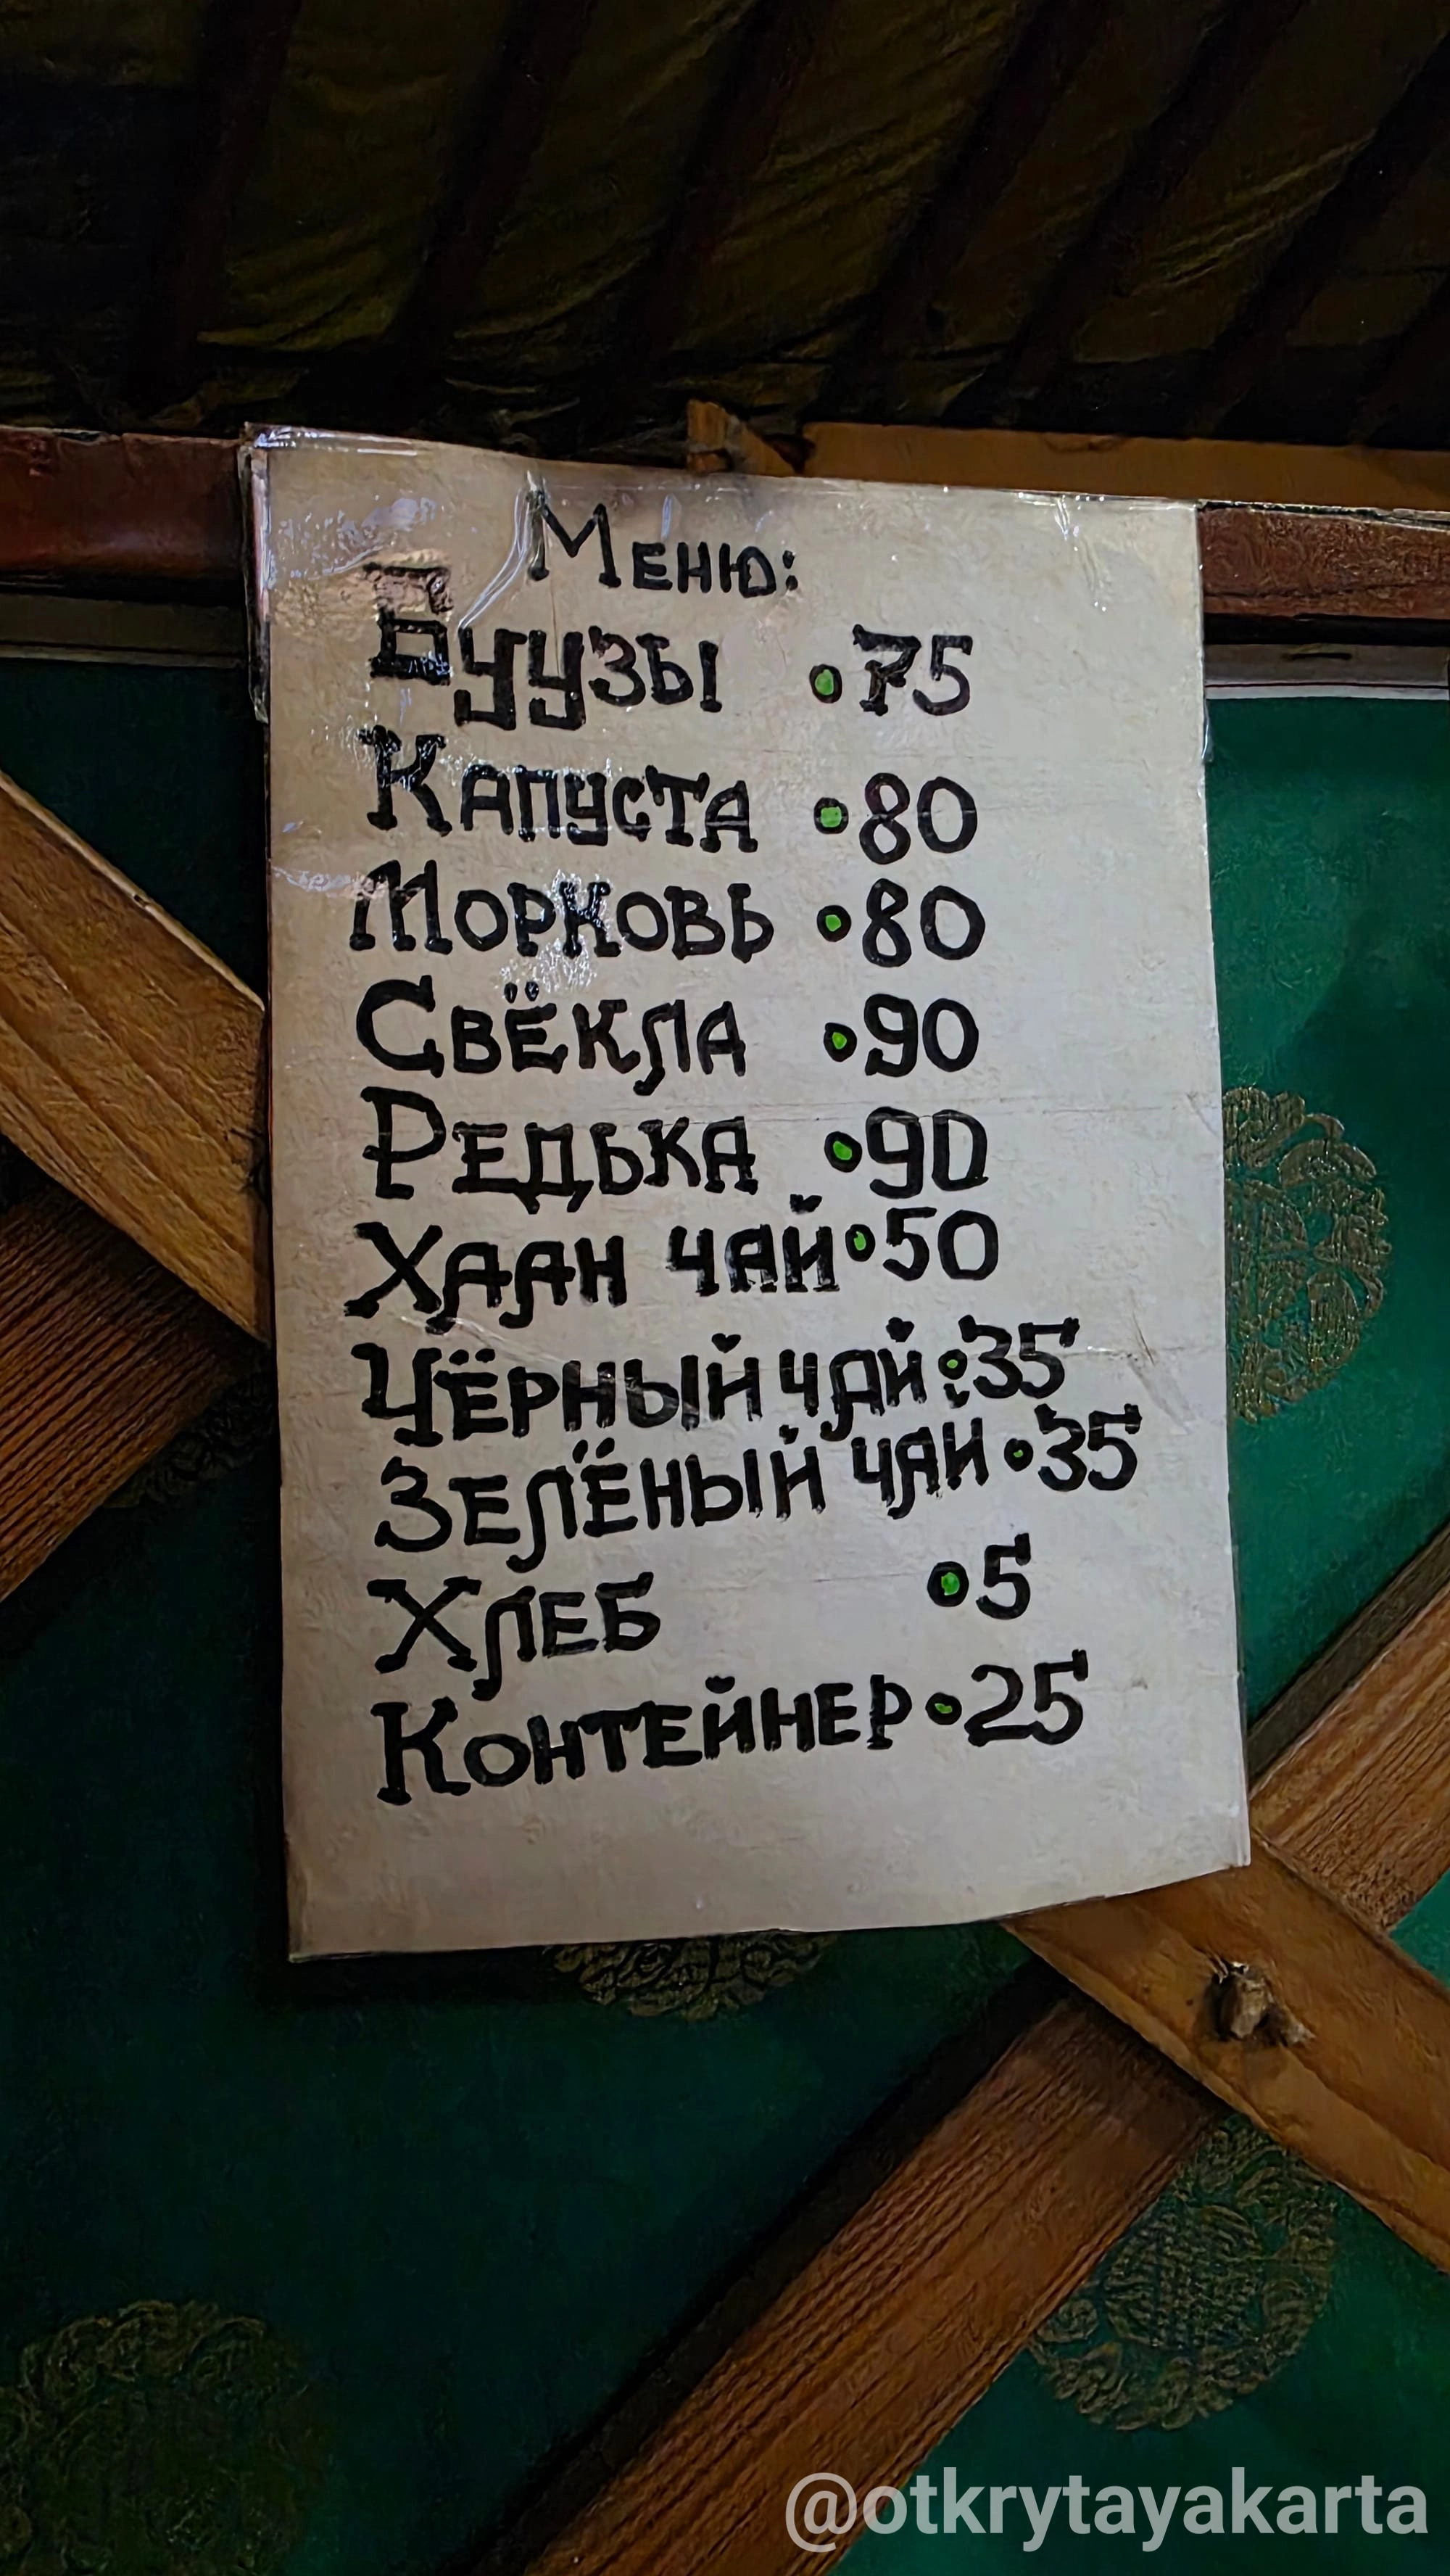 Меню:
Буузы •75
Капуста •80
Морковь •80
Свёкла •90
Редька •90
Хаан чай •50
Чёрный чай :35
Зелёный чай •35
Хлеб •5
Контейнер •25
@otkrytayakarta